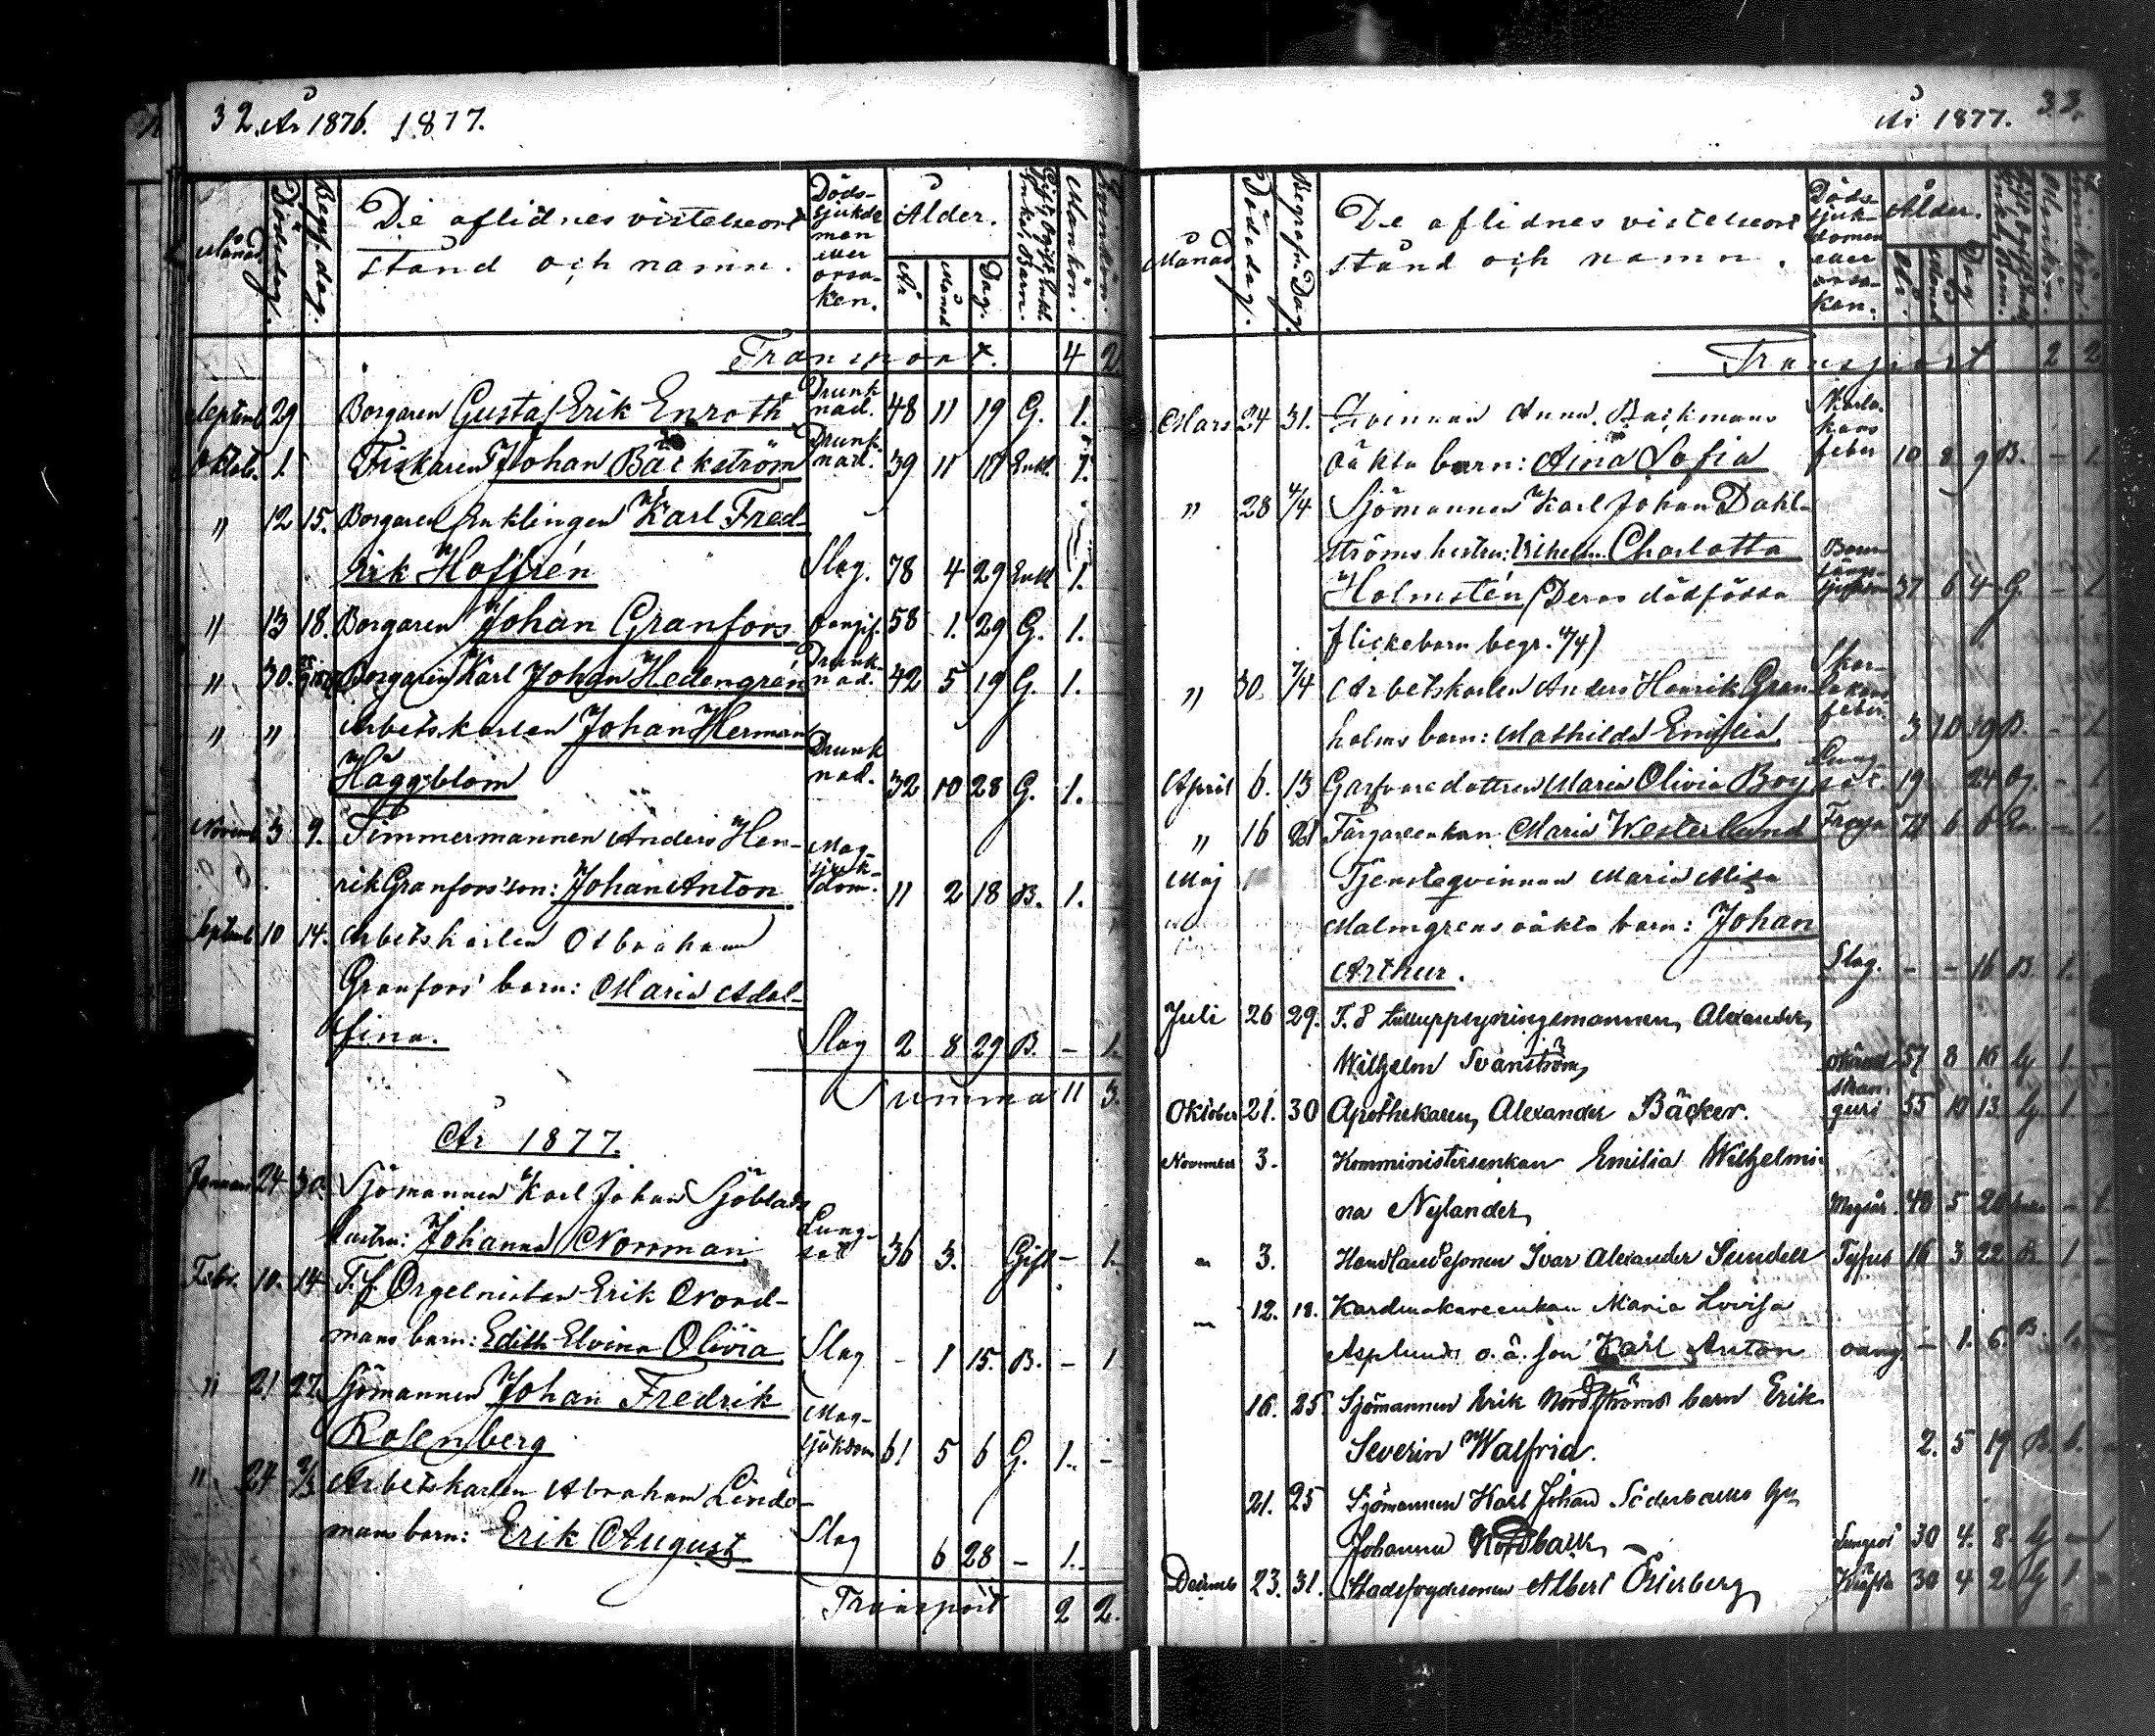 32. År 1876. 1877.
Månad Dödsdag. Begr. dag. De aflidnes vistelseort stånd och namn. Dödssjukdomen eller orsaken. Ålder. År Månad Dag. Mankön. Qvinkön.
Transport. 4 2
Septemb. 29 Borgaren Gustaf Erik Enroth Drunknad. 48 11 19 G. 1.
Oktob. 1. Fiskaren Johan Bäckström Drunknad. 39 11 18 Enkl. 1.
" 12 15. Borgaren Enklingen Karl Fred-
rik Hoffrén Slag. 78 4 29 Enkl 1.
" 13 18. Borgaren Johan Granfors 58 1. 29 G. 1.
" 30. Borgaren Karl Johan Hedengran Drunknad. 42 5 19 G. 1.
" " Arbetskarlen Johan Herman
Häggblom Drunknad. 32 10 28 G. 1.
Novemb. 3 9. Timmermannen Anders Hen-
rik Granfors' son: Johan Anton Magsjukdom. 11 2 18 B. 1.
Septemb. 10 14. Arbetskarlen Abraham
Granfors' barn: Maria Adol-
fina. Slag 2 8 29 B. - 1.
Summa 11 3.
År 1877.
Januari 24 30. Sjömannen Karl Johan Sjöblads
hustru: Johanna Norrman Lungsot 36 3. Gift - 1.
Febr. 10. 14 T.f. Orgelnisten Erik Nord-
mans barn: Edith Elvina Olivia Slag - 1 15. B. - 1
" 21 27. Sjömannen Johan Fredrik
Rosenberg Magsjukdom 61 5 6 G. 1. -
" 27 2/3 Arbetskarlen Abraham Lind-
mans barn: Erik August Slag 6 28 - 1.
Transport 2 2.
År 1877. 33.
Månad Dödsdag. Begrafn. Dag. De aflidnes vistelseort stånd och namn. Dödssjukdomen eller orsaken. Ålder. År. Månad Dag
Transport 2 2
Mars 24 31. Qvinnan Anna Backmans
oäkta barn: Aina Sofia Skarlakansfeber 10 8 9 B. - 1.
" 28 4/4 Sjömannen Karl Johan Dahl-
ströms hustru: Vilhelm. Charlotta
Holmstén (Deras dödfödda 37 6 4 G. - 1
flickebarn begr. 4/4)
" 30. 7/4 Arbetskarlen Anders Henrik Gran-
holms barn: Mathilda Emilia Skarlakansfeber. 3 10 19 B. - 1
April 6. 13 Garfvaredottren Maria Olivia Boy Lungsot. 19 24 Og. - 1
" 16 21 Färgareenkan Maria Westerlund 6 6 En. - 1
Maj Tjensteqvinnan Maria
Malmgrens oäkta barn: Johan
Arthur. Slag. - - 16 B. 1.
Juli 26 29. Alexander
Wilhelm Svanström 57 8 16 G 1. -
Oktober 21. 30 Apothekaren, Alexander Bäcker. stranguri 55 10 13. G. 1.
November 3. Komministersenkan Emilia Wilhelmi-
na Nylander 40 5 - 1
" 3. Handlandesonen Ivar Alexander Sundell Tyfus 16 3 22 B 1 -
" 12. 18. Kardmakareenkan Maria Lovisa
Asplunds o.ä. son Karl Anton - 1. 6. B. 1.
16. 25. Sjömannen Erik Nordströms barn Erik
Severin Walfrid. 2. 5 19 B. 1.
21. 25 Sjömannen Karl Johan Söderbacks
Johanna Nordback Lungsot 30 4. 8. G - 1
Decemb 23. 31. Stadsfogdesonen Albert Österberg Kräfta 30 4 2 G 1. -